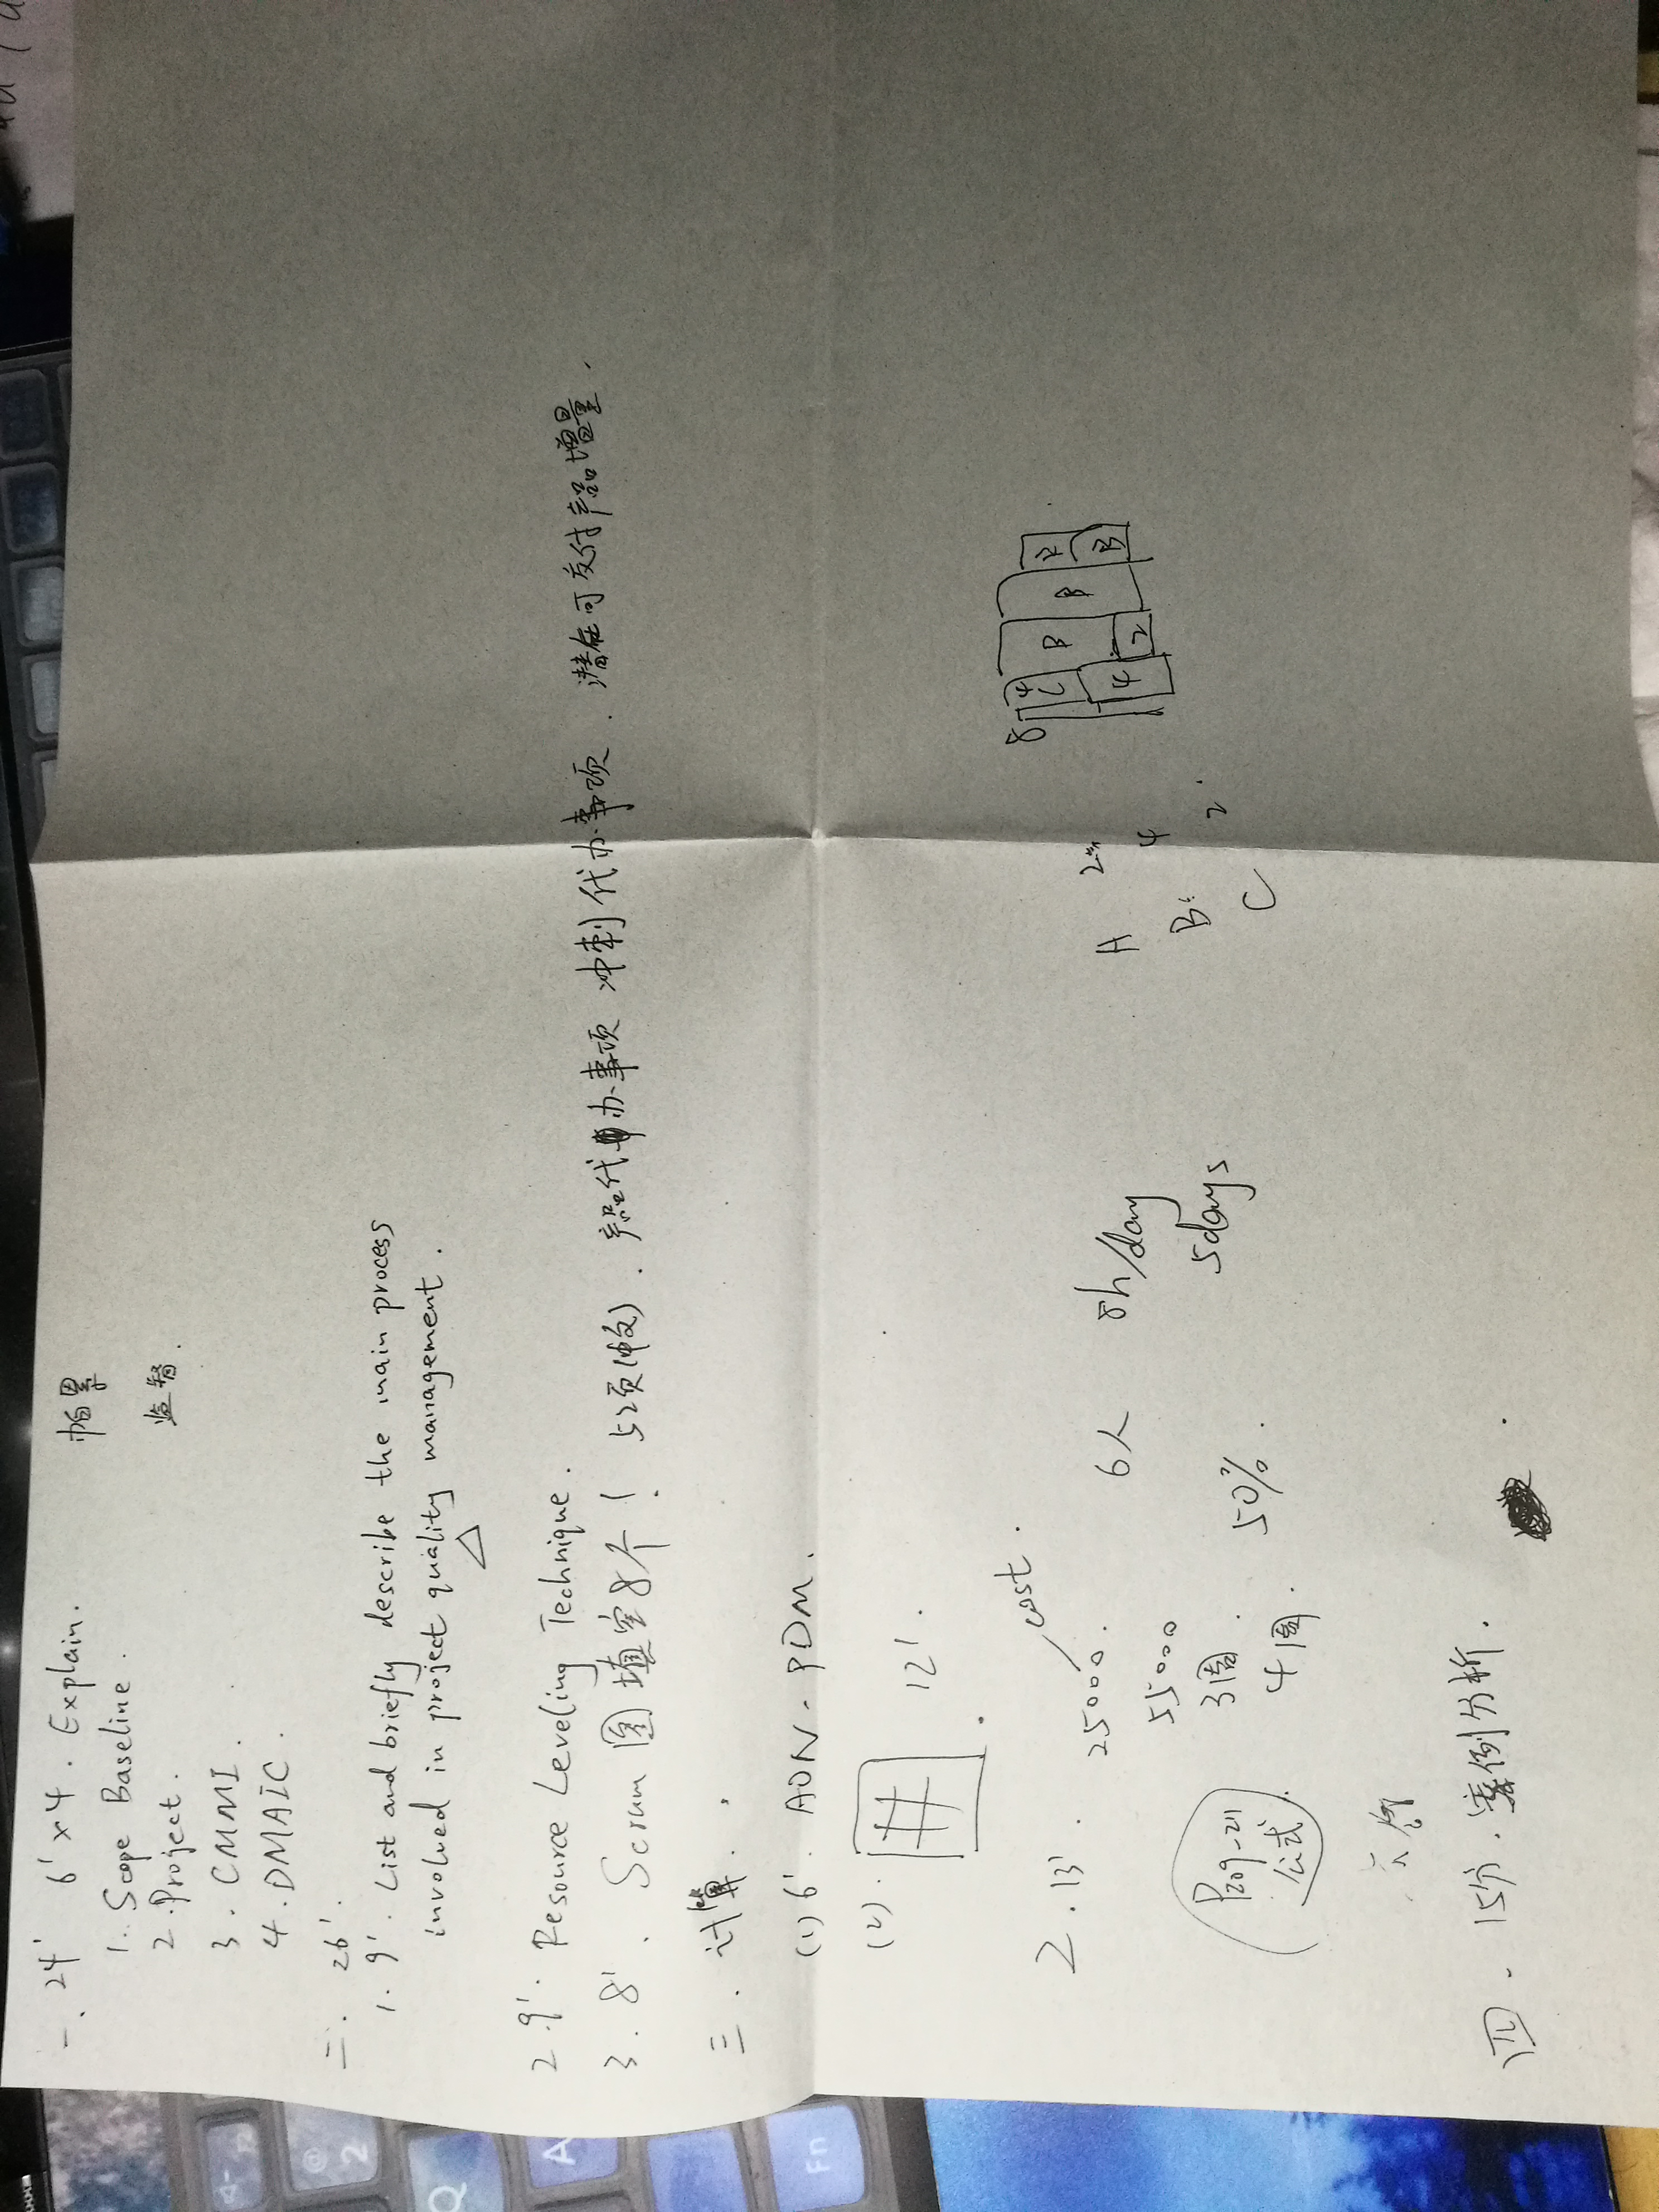 一. 24' 6'×4. Explain.
1. Scope Baseline.
2. Project.
3. CMMI.
4. DMAIC.
帕累
监督.
二. 26'.
1. 9'. List and briefly describe the main process
involved in project quality management.
2. 9'. Resource Leveling Technique.
3. 8'. Scrum 图填空8个! 52页(中文). 产品代办事项 冲刺代办事项. 潜在可交付产品增量.
三. 计算.
(1) 6'. AON - PDM.
(2). 12'.
2. 13'.
cost.
25000.
55000
3周.
4周.
P209-211
公式.
6人
50%.
8h/day
5days
A 2
B: 4
C 2.
8 4 C B B B
4 2 B
四. 15分. 案例分析.
@
2
Q
A
Fn